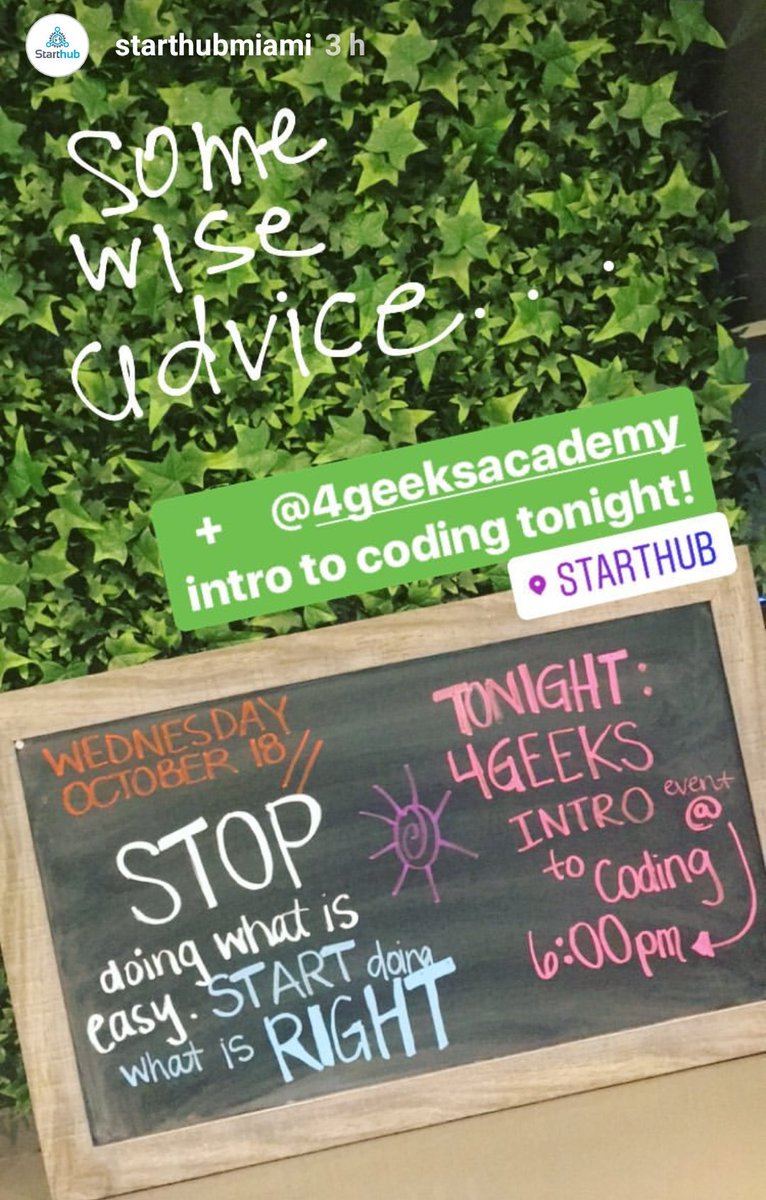 Starthub
starthubmiami 3 h
some
wise
advice...
+ @4geeksacademy
intro to coding tonight!
STARTHUB
WEDNESDAY
OCTOBER 18//
STOP
doing what is
easy. START doing
what is RIGHT
TONIGHT:
4GEEKS
INTRO event
to Coding @
6:00pm